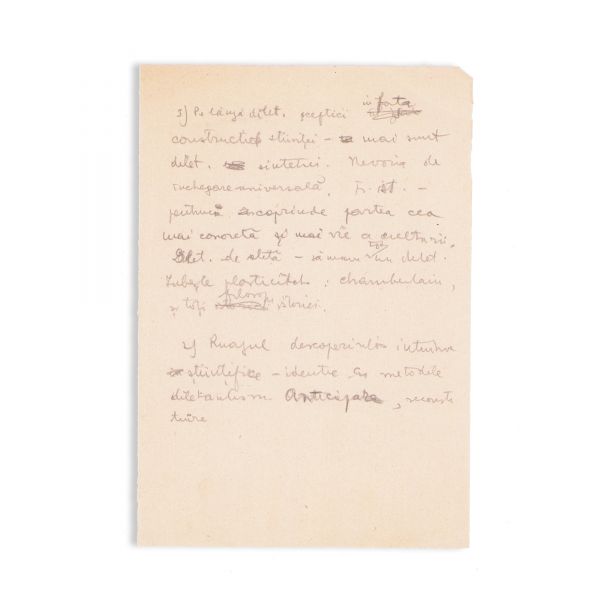 1) Pe lângă dilet. sceptici în fața
construcției științei – mai sunt
dilet. sintetici. Nevoia de
închegare universală. Fr. ist. –
pentru că cuprinde partea cea
mai concretă și mai vie a culturii.
Dilet. de elită – să mun tot un dild.
Iubește plasticitatea: Chamberlain,
și toți filosofii istoriei.
2) Ruajul descoperirilor intuitive
științifice – identic cu metodele
diletantism Anticipare, reconsti
tuire